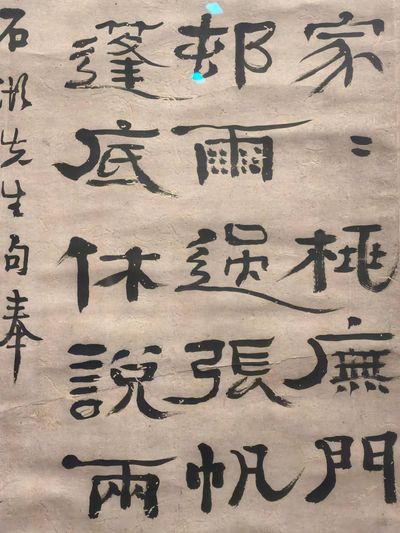 家〻桃廡門
邨雨過張帆
蓬底休說兩
石湖先生句奉